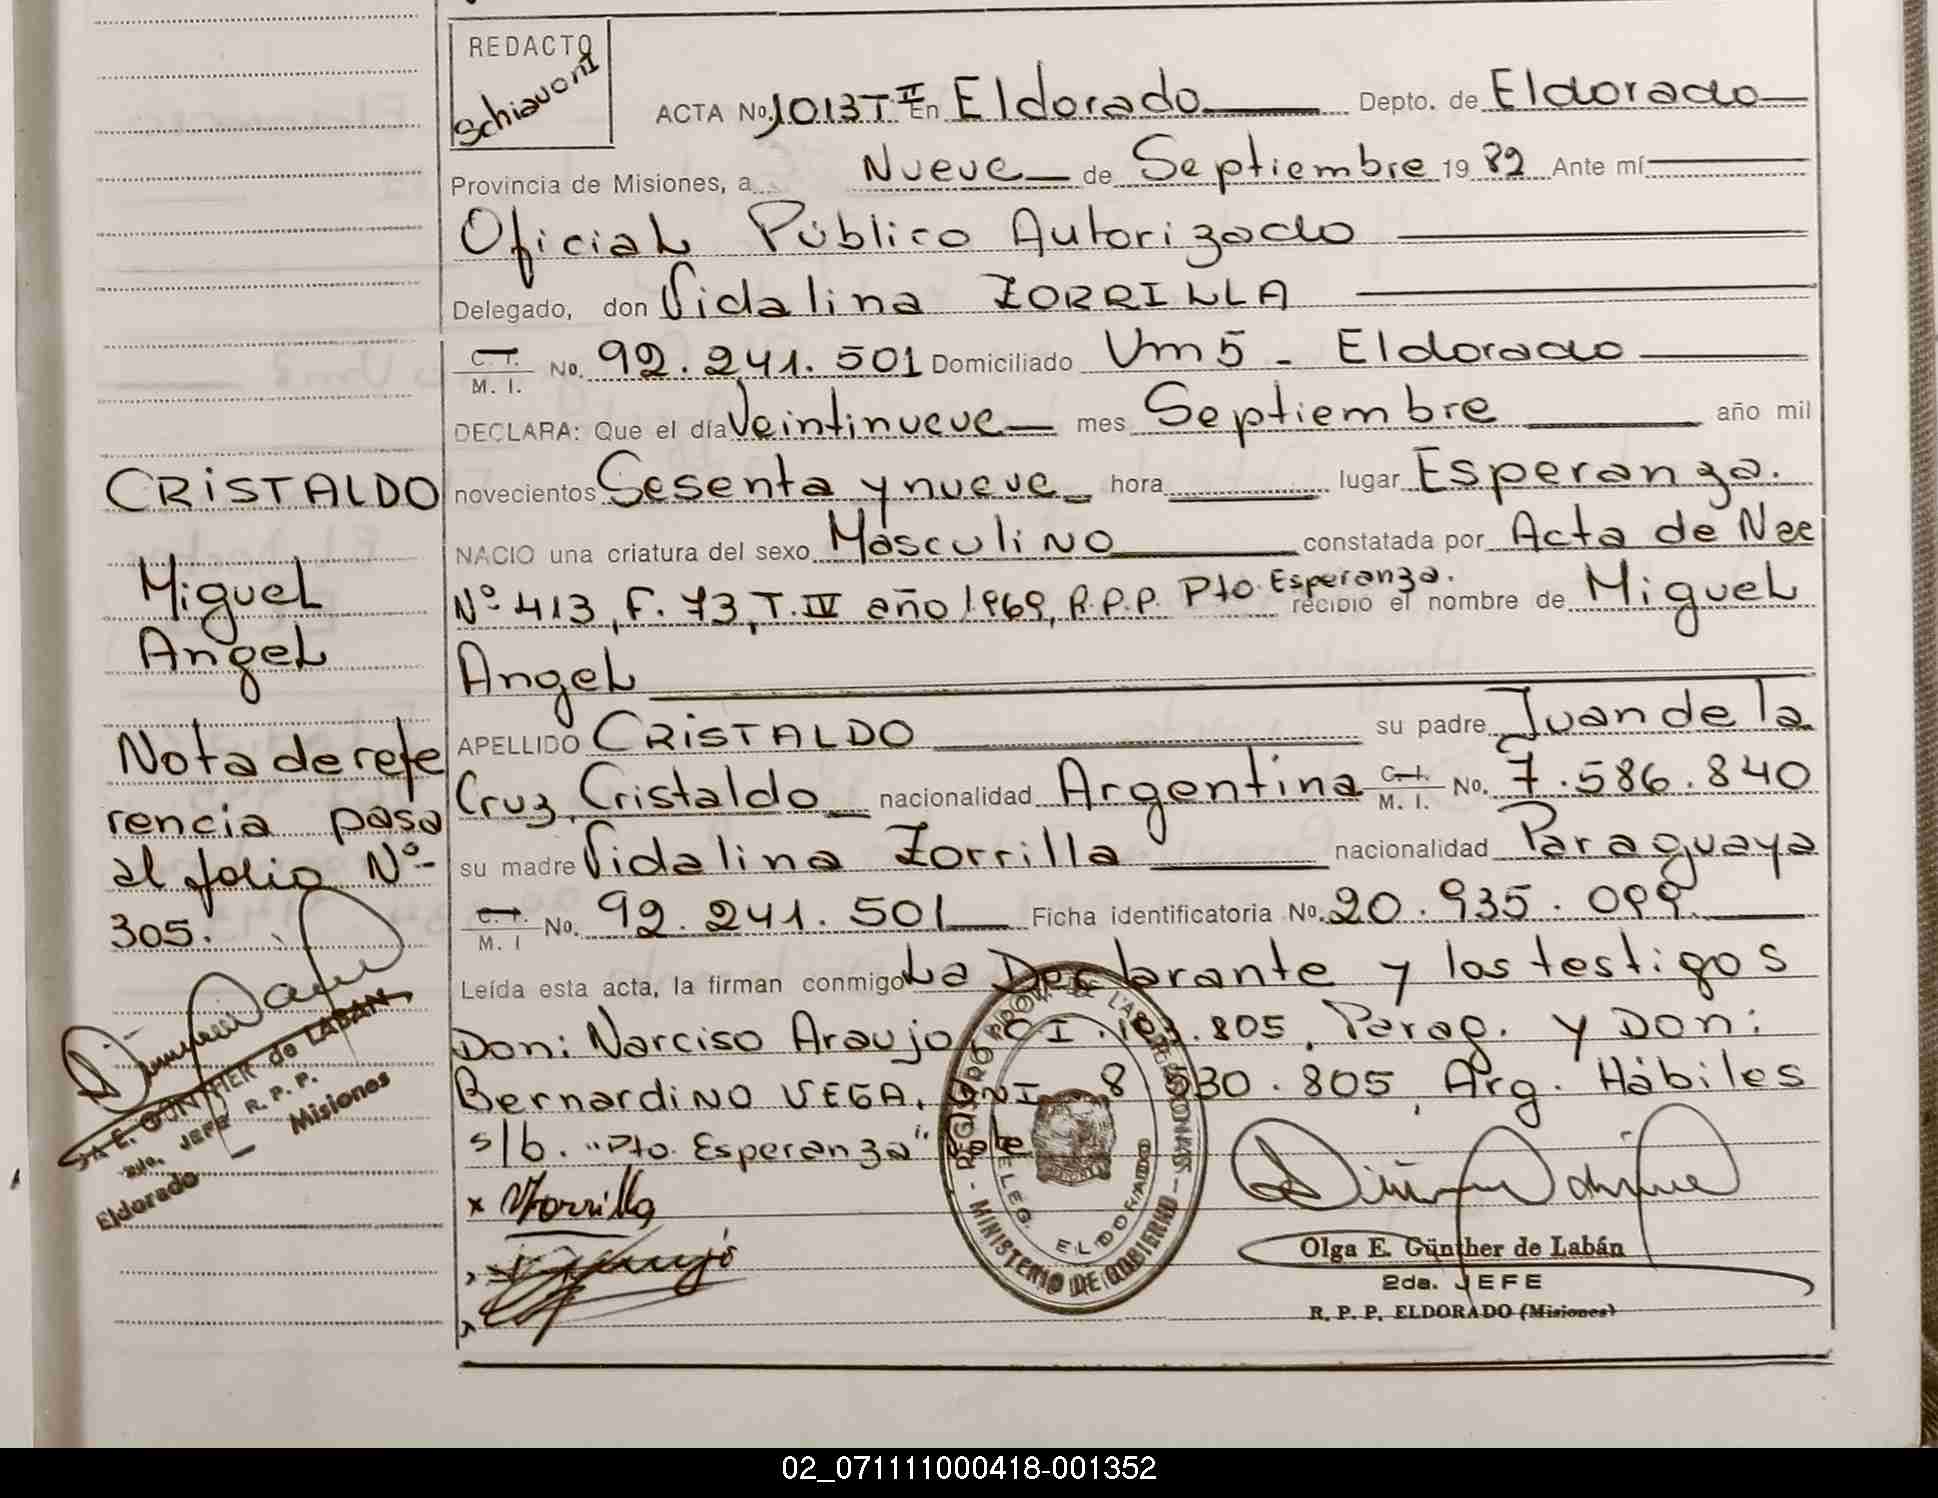 REDACTO
Schiavoni
ACTA No. 1013 T II En Eldorado Depto. de Eldorado
Provincia de Misiones, a Nueve de Septiembre 1982 Ante mí
Oficial Público Autorizado
Delegado, don Vidalina ZORRILLA
C. I. M. I. No. 92.241.501 Domiciliado Vm5 - Eldorado
DECLARA: Que el día Veintinueve mes Septiembre año mil
novecientos Sesenta y nueve hora lugar Esperanza.
NACIO una criatura del sexo Másculino constatada por Acta de Nac
Nº 413, F. 73, T. IV año 1969, R.P.P. Pto. Esperanza. recibió el nombre de Miguel
Angel
APELLIDO CRISTALDO su padre Juan de la
Cruz Cristaldo nacionalidad Argentina C. I. M. I. No. 7.586.840
su madre Vidalina Zorrilla nacionalidad Paraguaya
C. I. M. I No. 92.241.501 Ficha identificatoria No. 20.935.099
Leída esta acta, la firman conmigo La Declarante y los testigos
Don: Narciso Araujo, C I. .805, Parag. y Don:
Bernardino VEGA, DNI 8 030.805, Arg. Hábiles
s/b. "Pto. Esperanza"
x VZorrilla
CRISTALDO
Miguel
Angel
Nota de refe
rencia pasa
al folio Nº-
305.
E. GÜNTHER de LABAN
2da. JEFE R. P. P.
Eldorado - Misiones
MINISTERIO DE GOBIERNO
DELEG. ELDORADO
Olga E. Günther de Labán
2da. JEFE
R. P. P. ELDORADO (Misiones)
02_071111000418-001352